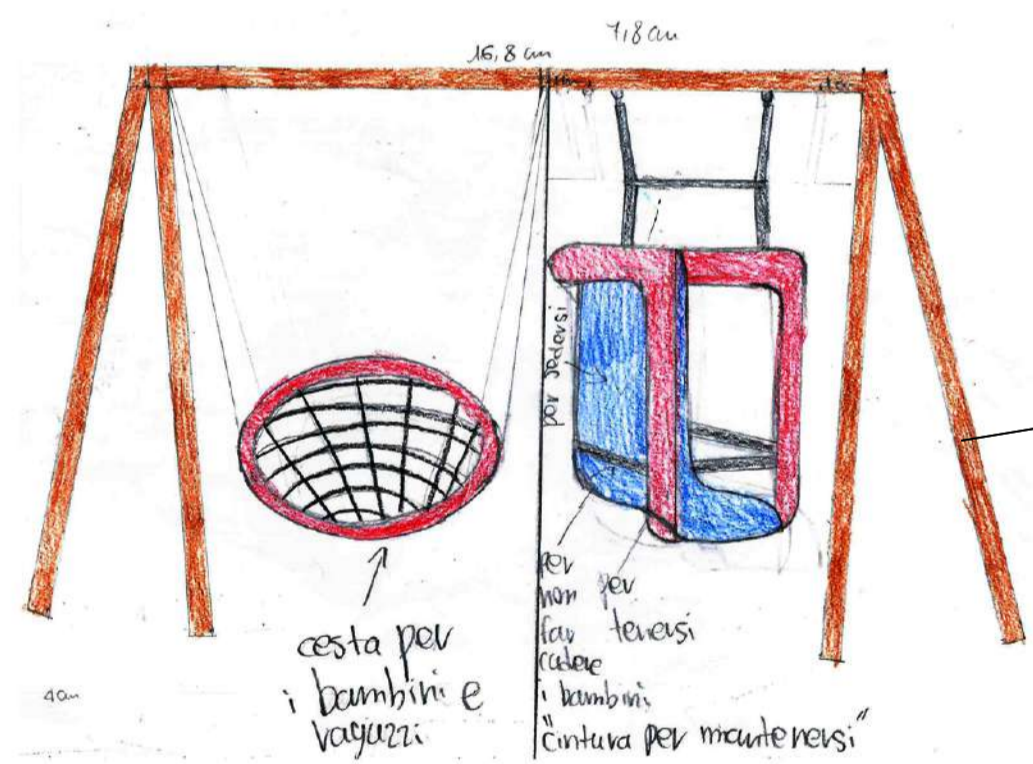 7,8 cm
16,8 cm
per sedersi
cesta per
i bambini e
ragazzi
per
non
far
cadere
i bambini
per
tenersi
"cintura per mantenersi"
4 cm